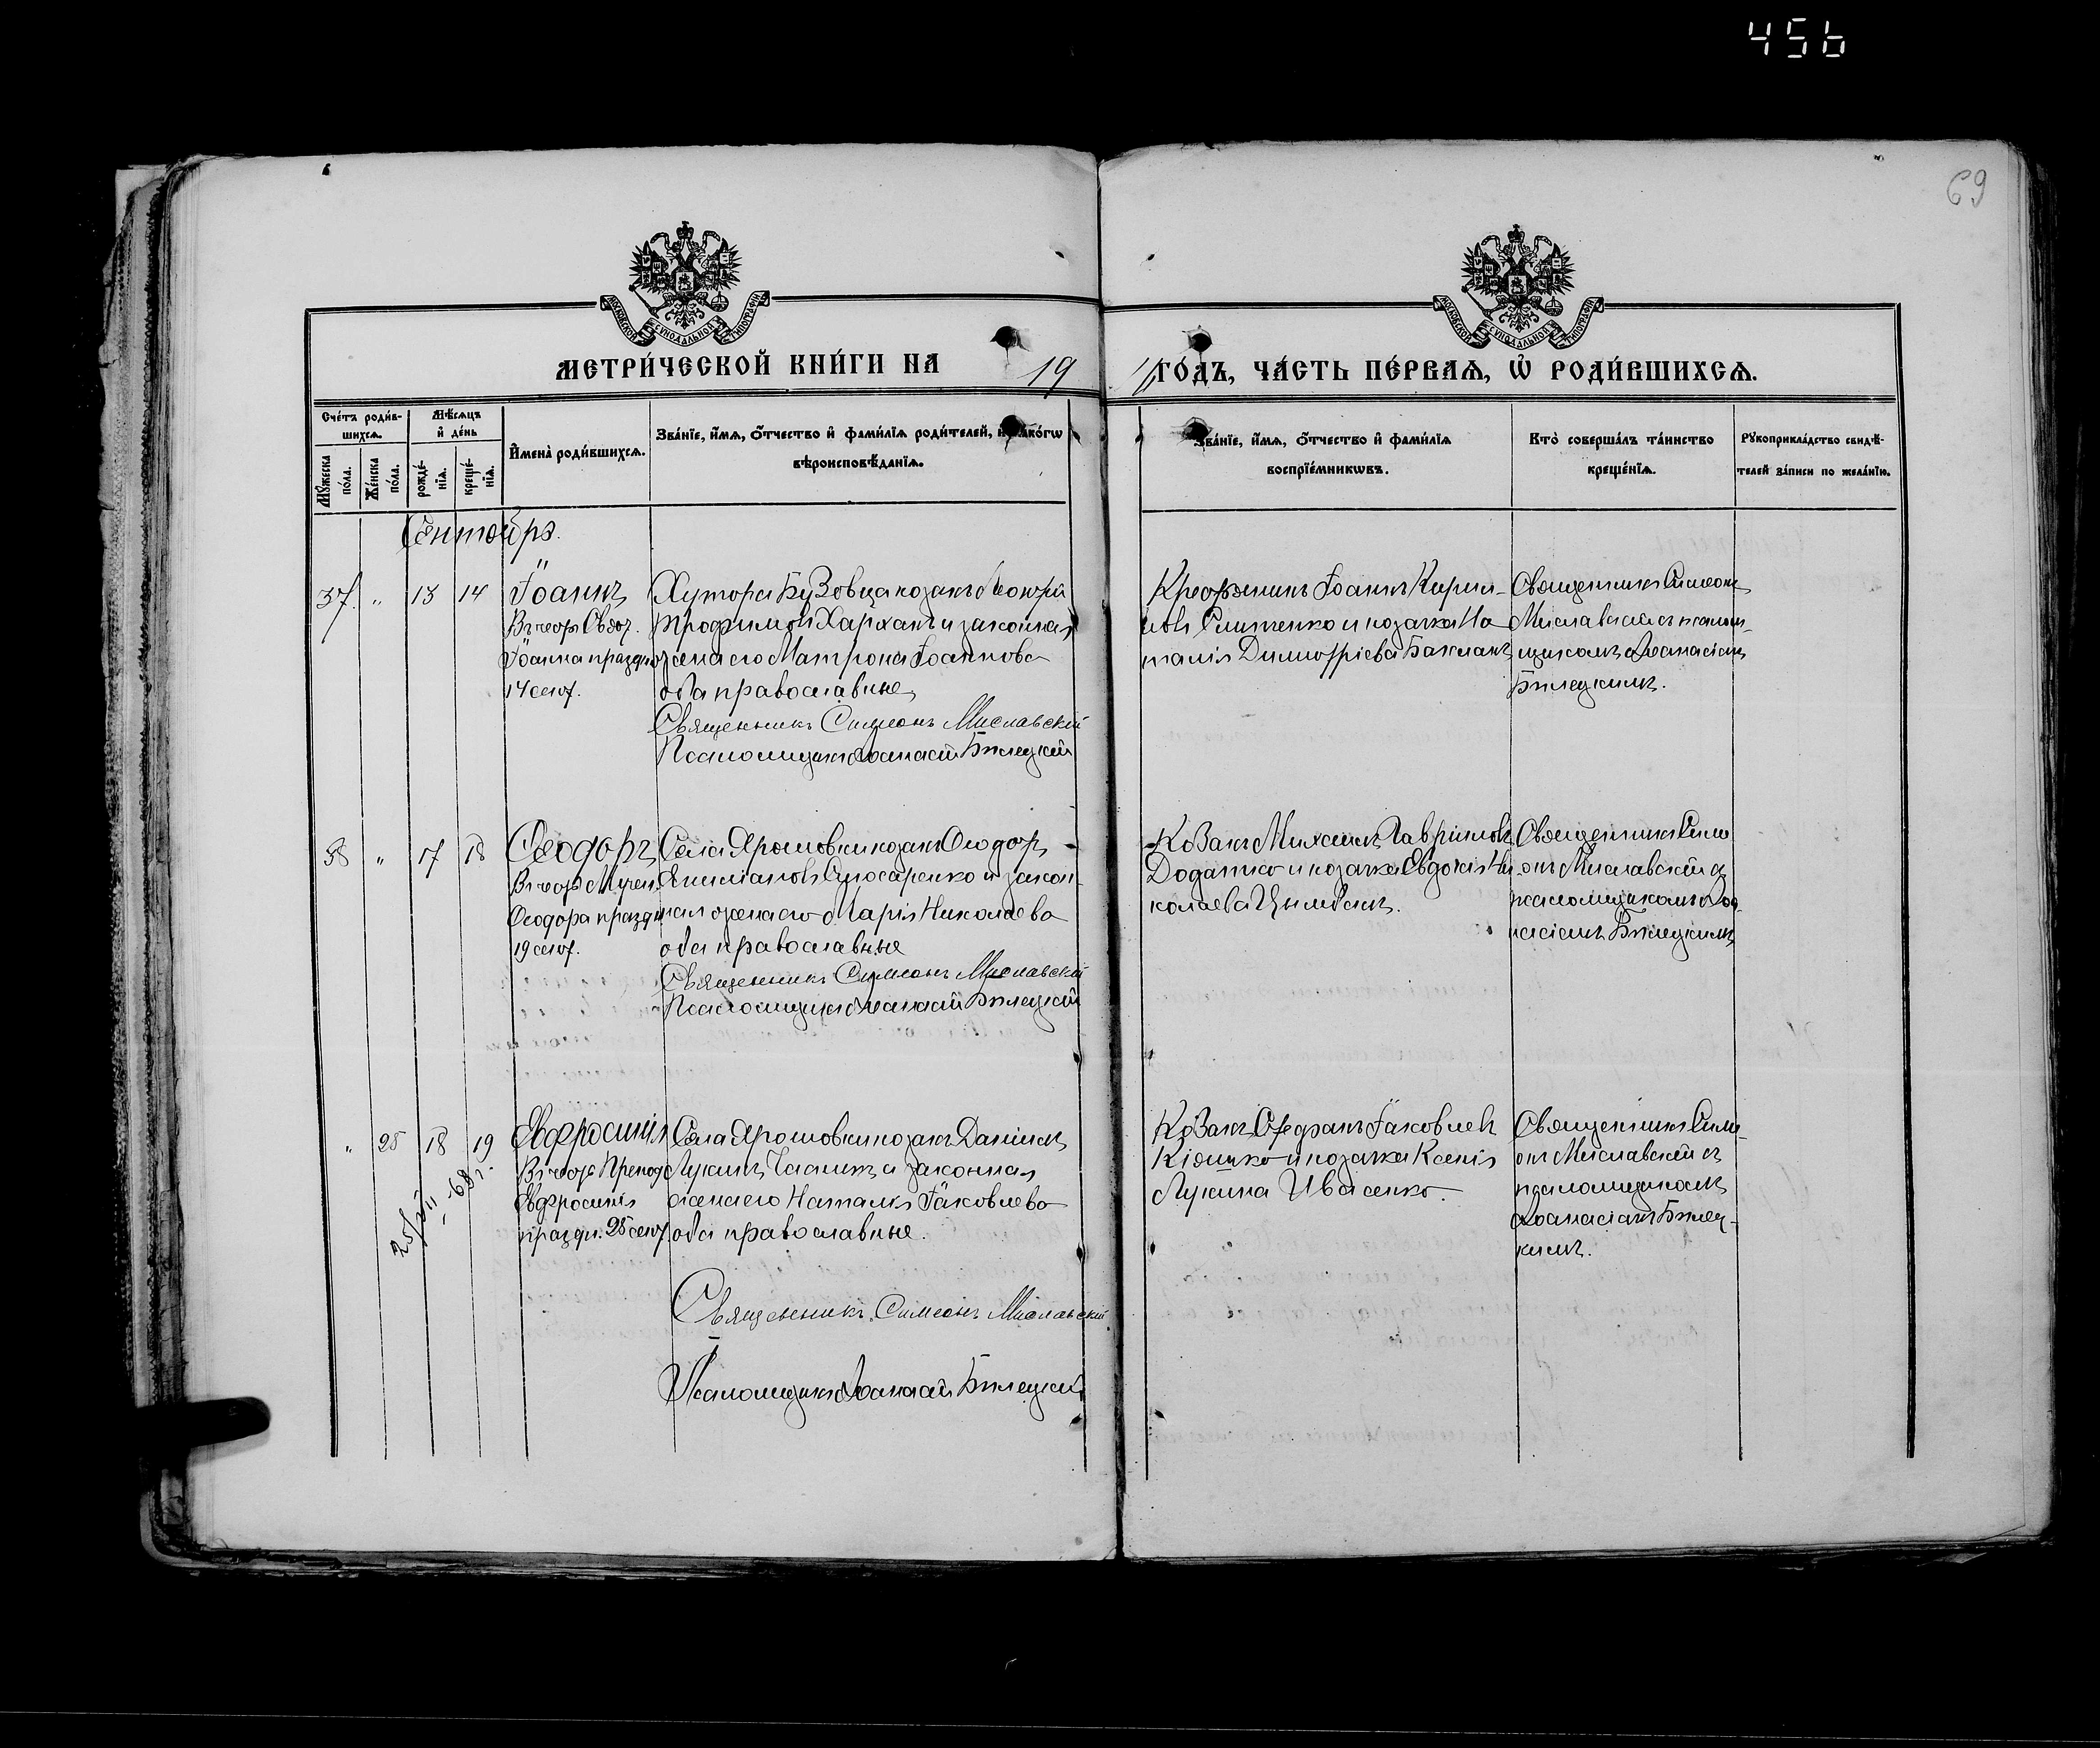 456
69
МОСКОВСКОЙ СѴНОДАЛЬНОЙ ТИПОГРАФІИ
МОСКОВСКОЙ СѴНОДАЛЬНОЙ ТИПОГРАФІИ
МЕТРИ́ЧЕСКОЙ КНИ́ГИ НА 19
ГО́ДЪ, ЧА́СТЬ ПЕ́РВАѦ, Ѿ РОДИ́ВШИХСѦ.
Сче́тъ роди́в-
шихсѧ.
Мѣ́сѧцъ
и҆ де́нь
Мꙋ́жеска
по́ла.
Же́нска
по́ла.
рожде́-
нїѧ.
креще́-
нїѧ.
И҆мена̀ роди́вшихсѧ.
Зва́нїе, и҆́мѧ, ѻ҆́тчество и҆ фами́лїѧ роди́телей, и҆ како́гѡ
вѣроисповѣ́данїѧ.
Зва́нїе, и҆́мѧ, ѻ҆́тчество и҆ фами́лїѧ
воспрїе́мникѡвъ.
Кто̀ соверша́лъ та́инство
креще́нїѧ.
Рꙋкоприкла́дство свидѣ́-
телей за́писи по жела́нїю.
Сентябрь.
37. " 13 14
Іоаннъ
Въ чест Свят.
Іоанна праздн.
14 сент.
Хутора Бузовца козакъ
Трофимовъ Харханъ и законная
жена его Матрона Іоаннова
оба православные
Священникъ Симеонъ Миславскій
Псаломщикъ Аѳанасій Бѣлецкій
Крестьянинъ Іоаннъ Кирил-
ловъ и козачка На
талія Димитріева Бакланъ
Священникъ Симеонъ
Миславскій съ псалом-
щикомъ Аѳанасіемъ
Бѣлецкимъ.
38 " 17 18
Ѳеодоръ
Въ чест Мучен.
Ѳеодора праздн.
19 сент.
Села Ярошовки козакъ Ѳеодоръ
Слюсаренко и закон-
ная жена его Марія Николаева
оба православные
Священникъ Симеонъ Миславскій
Псаломщикъ Аѳанасій Бѣлецкій
Козакъ Михаилъ Гавриловъ
Додатко и козачка Евдокія Ни
колаева Цымбалъ.
Священникъ Симе
онъ Миславскій съ
псаломщикомъ Аѳа-
насіемъ Бѣлецкимъ
" 25 18 19
Евфросинія
Въ честь Препод
Евфросинія
праздн. 25 сент.
Села Ярошовки козакъ Даніилъ
Лукинъ и законная
жена его Наталія Іаковлева
оба православные.
Священникъ Симеонъ Миславскій
Псаломщикъ Аѳанасій Бѣлецкій
Козакъ Стефанъ Іаковлевъ
и козачка Ксенія
Лукина Ивасенко.
Священникъ Симе-
онъ Миславскій съ
псаломщикомъ
Аѳанасіемъ Бѣлец-
кимъ.